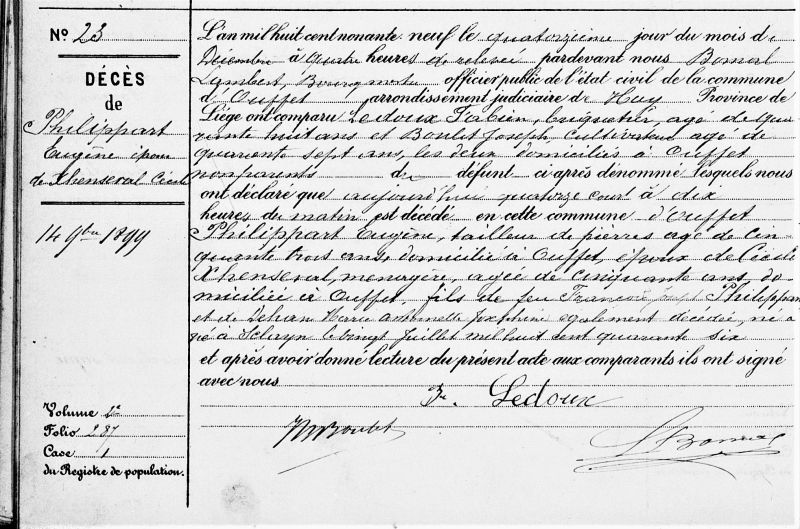 N° 23
DÉCÈS
de
Philippart
Eugène époux
de Xhenseval Cécile
14 9bre 1899
Volume
Folio 287
Case 1
du Registre de population.
L'an mil huit cent nonante neuf le quatorzième jour du mois de
Décembre à quatre heures de relevée pardevant nous Bomal
Lambert, Bourgmestre officier public de l'état civil de la commune
d'Ouffet arrondissement judiciaire de Huy Province de
Liége ont comparu Ledoux Fabien, agé de qua
rante huit ans et Boulet Joseph, cultivateur agé de
quarante sept ans, les deux domiciliés à Ouffet
non parents du défunt ci après dénommé lesquels nous
ont déclaré que aujourd'hui quatorze cour^t à dix
heures du matin est décédé en cette commune d'Ouffet
Philippart Eugène, tailleur de pierres agé de cin
quante trois ans, domicilié à Ouffet, époux de Cécile
Xhenseval, ménagère, agée de cinquante ans do
miciliée à Ouffet, fils de feu François Philippart
et de Dehan Marie Antoinette Joséphine également décédée, né
à Sclayn le vingt Juillet mil huit cent quarante six
et après avoir donné lecture du présent acte aux comparants ils ont signé
avec nous
Ledoux
Boulet
L Bomal